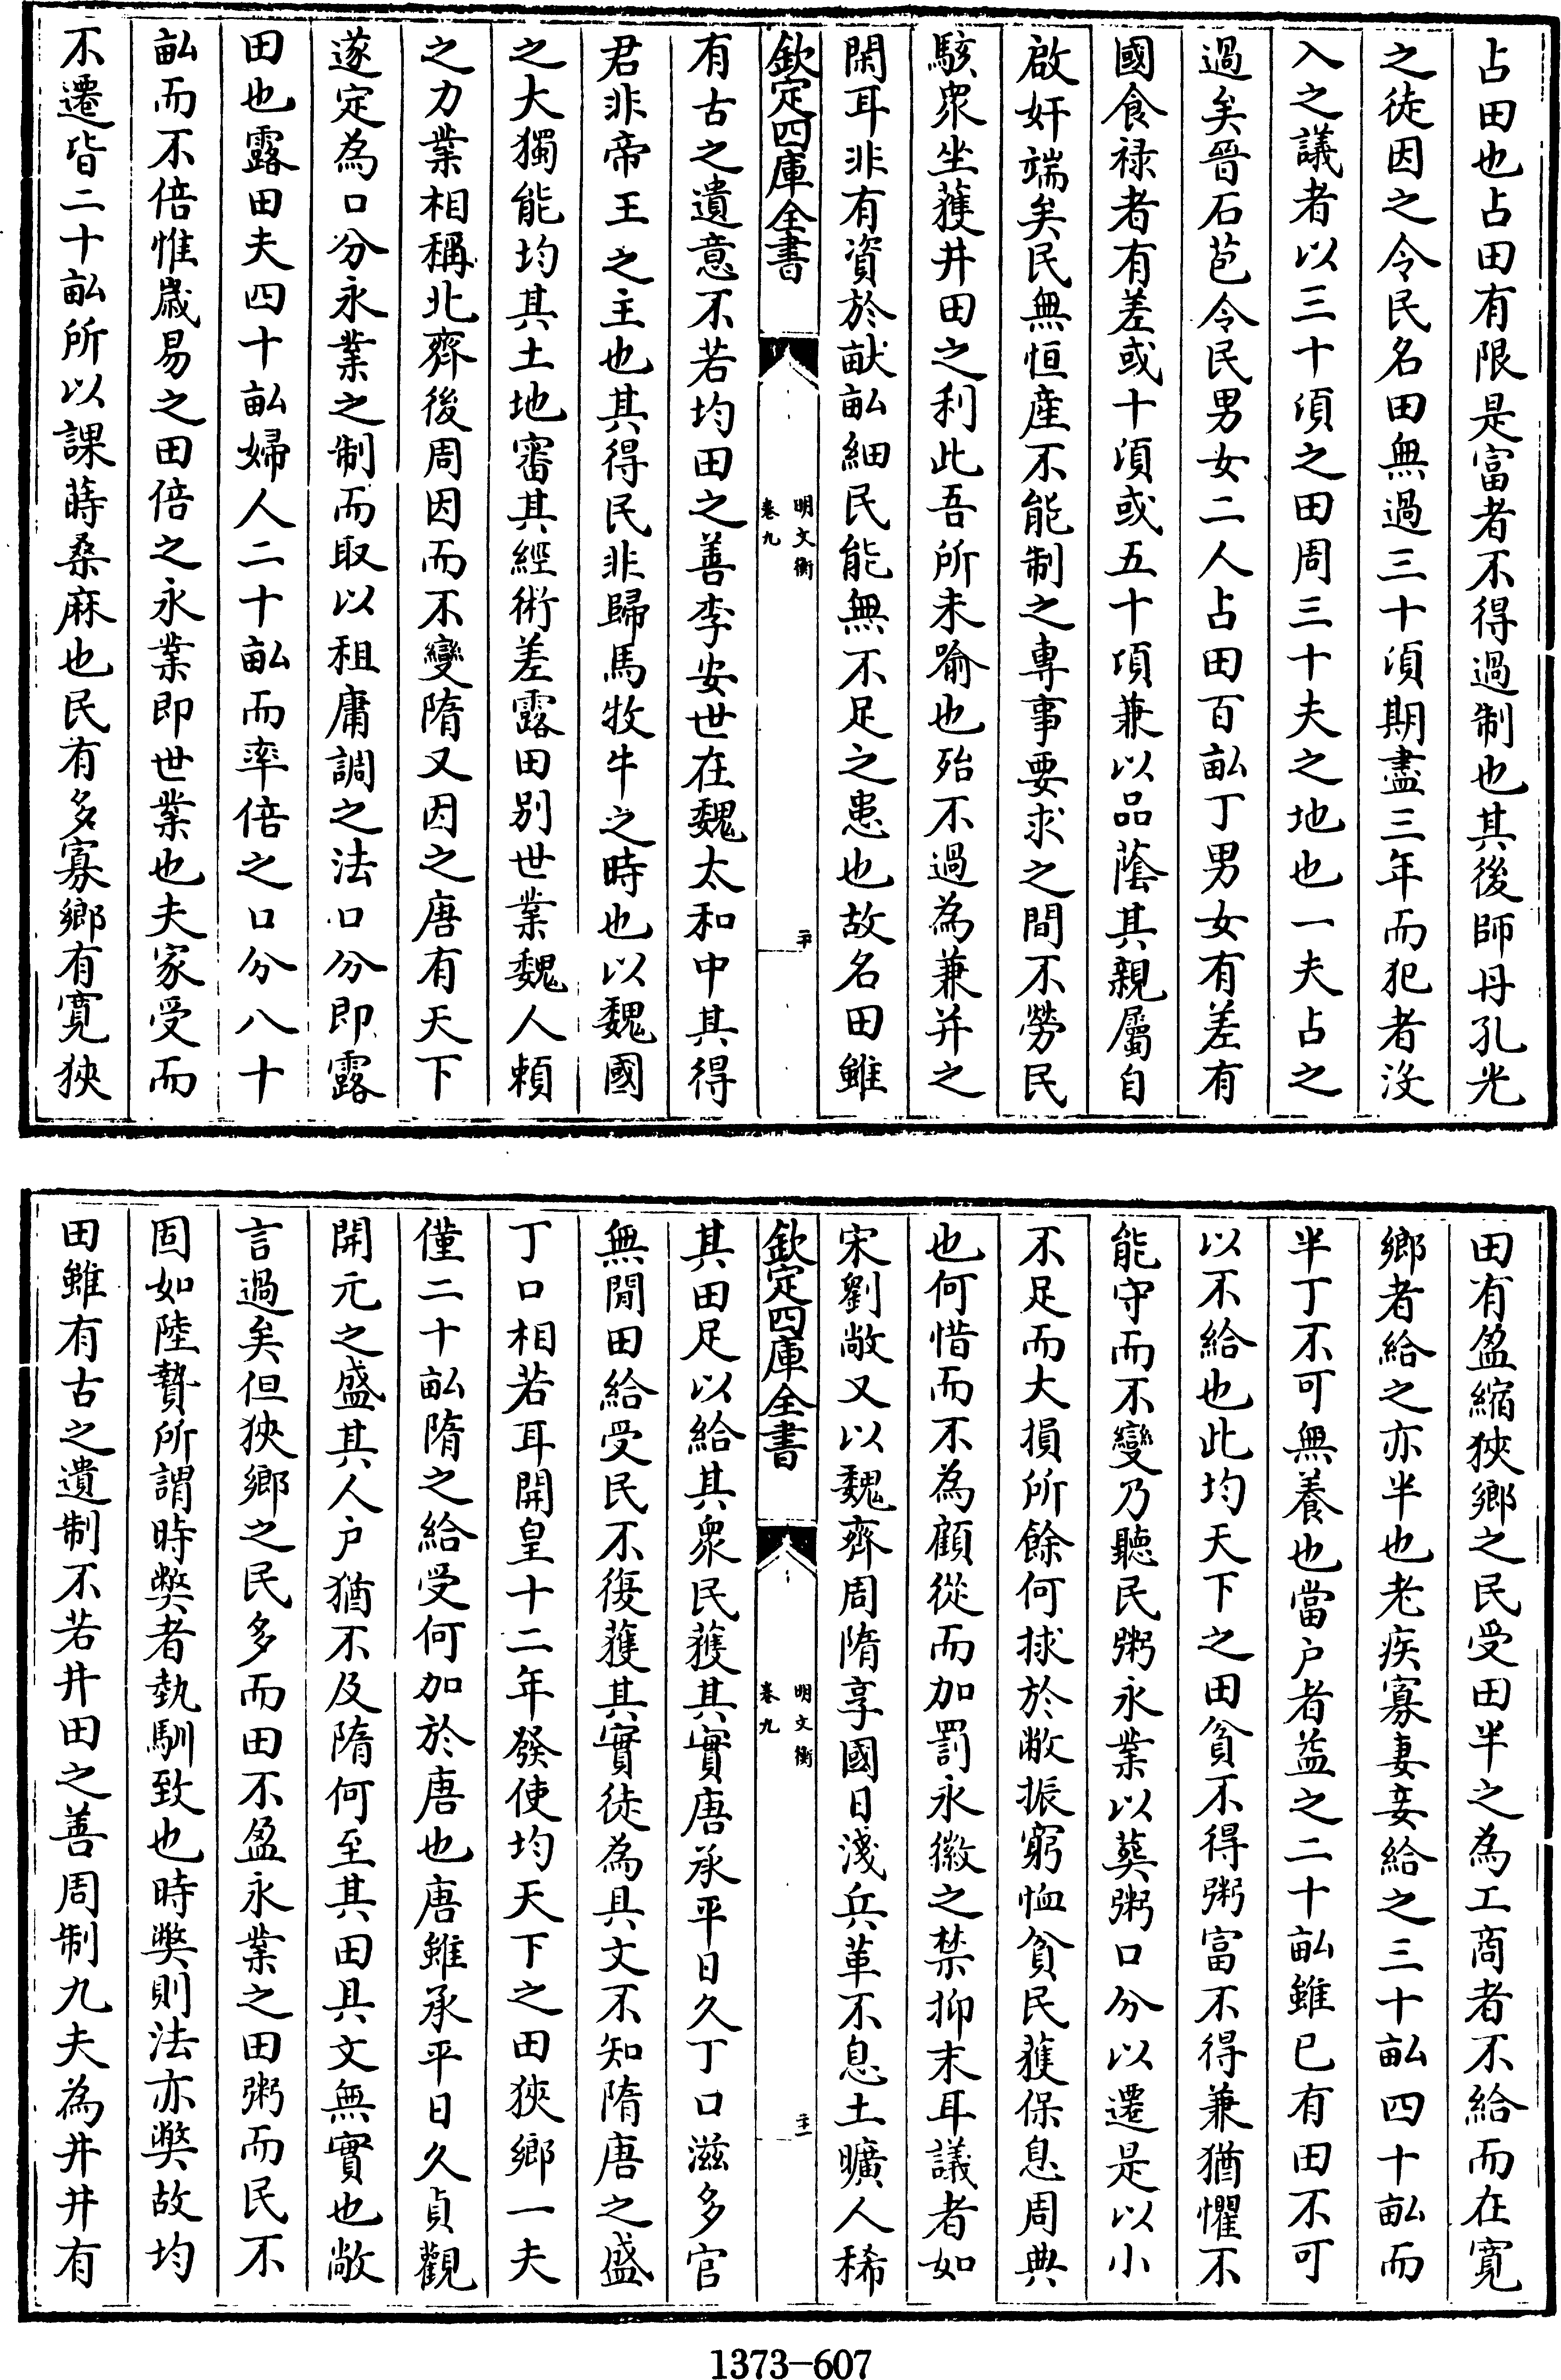 占田也占田有限是富者不得過制也其後師丹孔光
之徒因之令民名田無過三十頃期盡三年而犯者沒
入之議者以三十頃之田周三十夫之地也一夫占之
過矣晉石苞令民男女二人占田百畝丁男女有差有
國食祿者有差或十頃或五十頃兼以品蔭其親屬自
啟奸端矣民無恒産不能制之專事要求之間不勞民
駭衆坐獲井田之利此吾所未喻也殆不過為兼并之
閑耳非有資於猷畝細民能無不足之患也故名田雖
欽定四庫全書
明文衡
卷九
二十
有古之遺意不若均田之善李安世在魏太和中其得
君非帝王之主也其得民非歸馬牧牛之時也以魏國
之大獨能均其土地審其經術差露田别世業魏人賴
之力業相稱北齊後周因而不變隋又因之唐有天下
遂定為口分永業之制而取以租庸調之法口分即露
田也露田夫四十畝婦人二十畝而率倍之口分八十
畝而不倍惟歲易之田倍之永業即世業也夫家受而
不遷皆二十畝所以課蒔桑麻也民有多寡鄉有寬狹
田有盈縮狹鄉之民受田半之為工商者不給而在寬
鄉者給之亦半也老疾寡妻妾給之三十畝四十畝而
半丁不可無養也當户者益之二十畝雖已有田不可
以不給也此均天下之田貧不得粥富不得兼猶懼不
能守而不變乃聽民粥永業以葬粥口分以遷是以小
不足而大損所餘何捄於敝振窮恤貧民獲保息周典
也何惜而不為顧從而加罰永徽之禁抑末耳議者如
宋劉敞又以魏齊周隋享國日淺兵革不息土曠人稀
欽定四庫全書
明文衡
卷九
二十一
其田足以給其衆民獲其實唐承平日久丁口滋多官
無閒田給受民不復獲其實徒為具文不知隋唐之盛
丁口相若耳開皇十二年發使均天下之田狹鄉一夫
僅二十畝隋之給受何加於唐也唐雖承平日久貞觀
開元之盛其人户猶不及隋何至其田具文無實也敞
言過矣但狹鄉之民多而田不盈永業之田粥而民不
固如陸贄所謂時獘者埶馴致也時獘則法亦獘故均
田雖有古之遺制不若井田之善周制九夫為井井有
1373-607